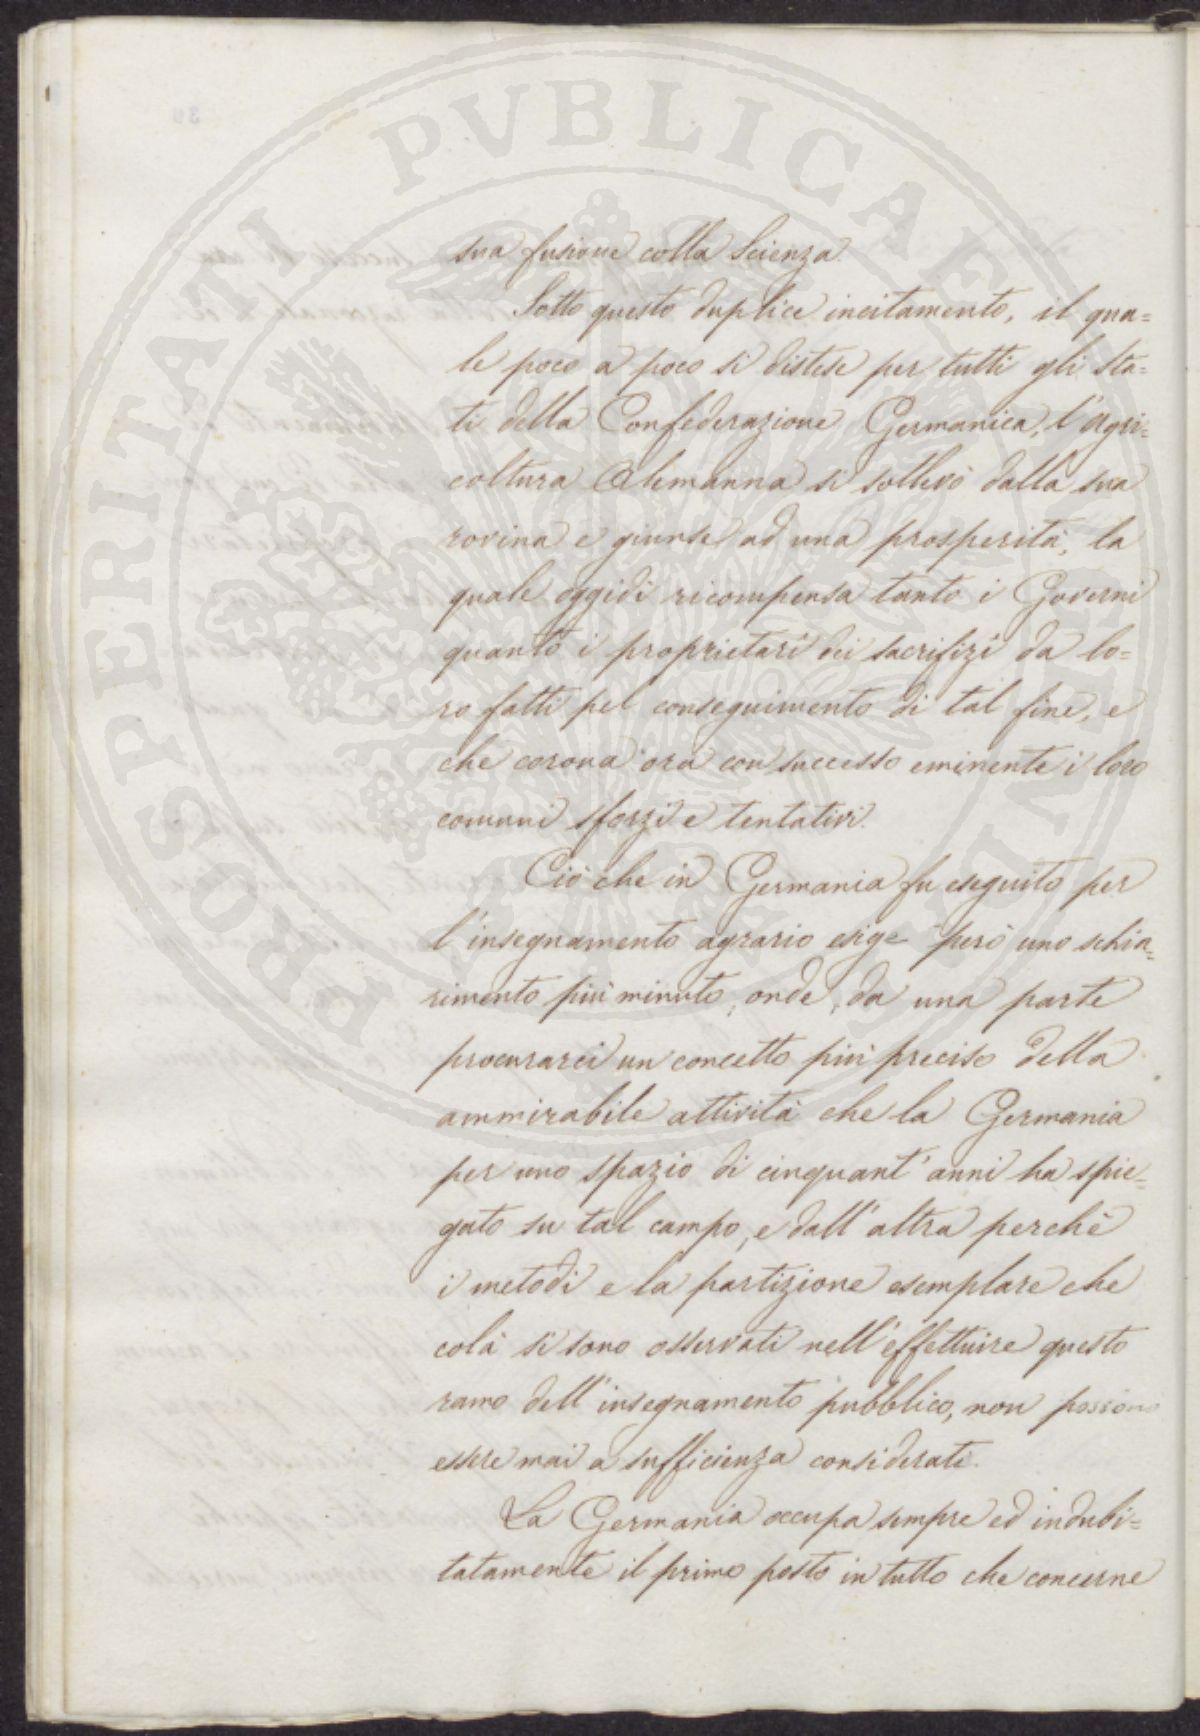 PROSPERITATI PVBLICAE
sua fusione colla Scienza.
Sotto questo duplice incitamento, il qua=
le poco a poco si distese per tutti gli Sta=
ti della Confederazione Germanica, l'agri=
coltura Alemanna si sollevò dalla sua
rovina e giunse ad una prosperità, la
quale oggidì ricompensa tanto i Governi
quanto i proprietarî dei sacrifizî da lo=
ro fatti pel conseguimento di tal fine, e
che corona ora con successo eminente i loro
comuni sforzi e tentativi.
Ciò che in Germania fu eseguito per
l'insegnamento agrario esige però uno schia=
rimento più minuto, onde, da una parte
procurarci un concetto più preciso della
ammirabile attività che la Germania
per uno spazio di cinquant'anni ha spie=
gato su tal campo, e dall'altra perchè
i metodi e la partizione esemplare che
colà si sono osservati nell'effettuire questo
ramo dell'insegnamento pubblico, non possono
essere mai a sufficienza considerati.
La Germania occupa sempre ed indubi=
tatamente il primo posto in tutto che concerne